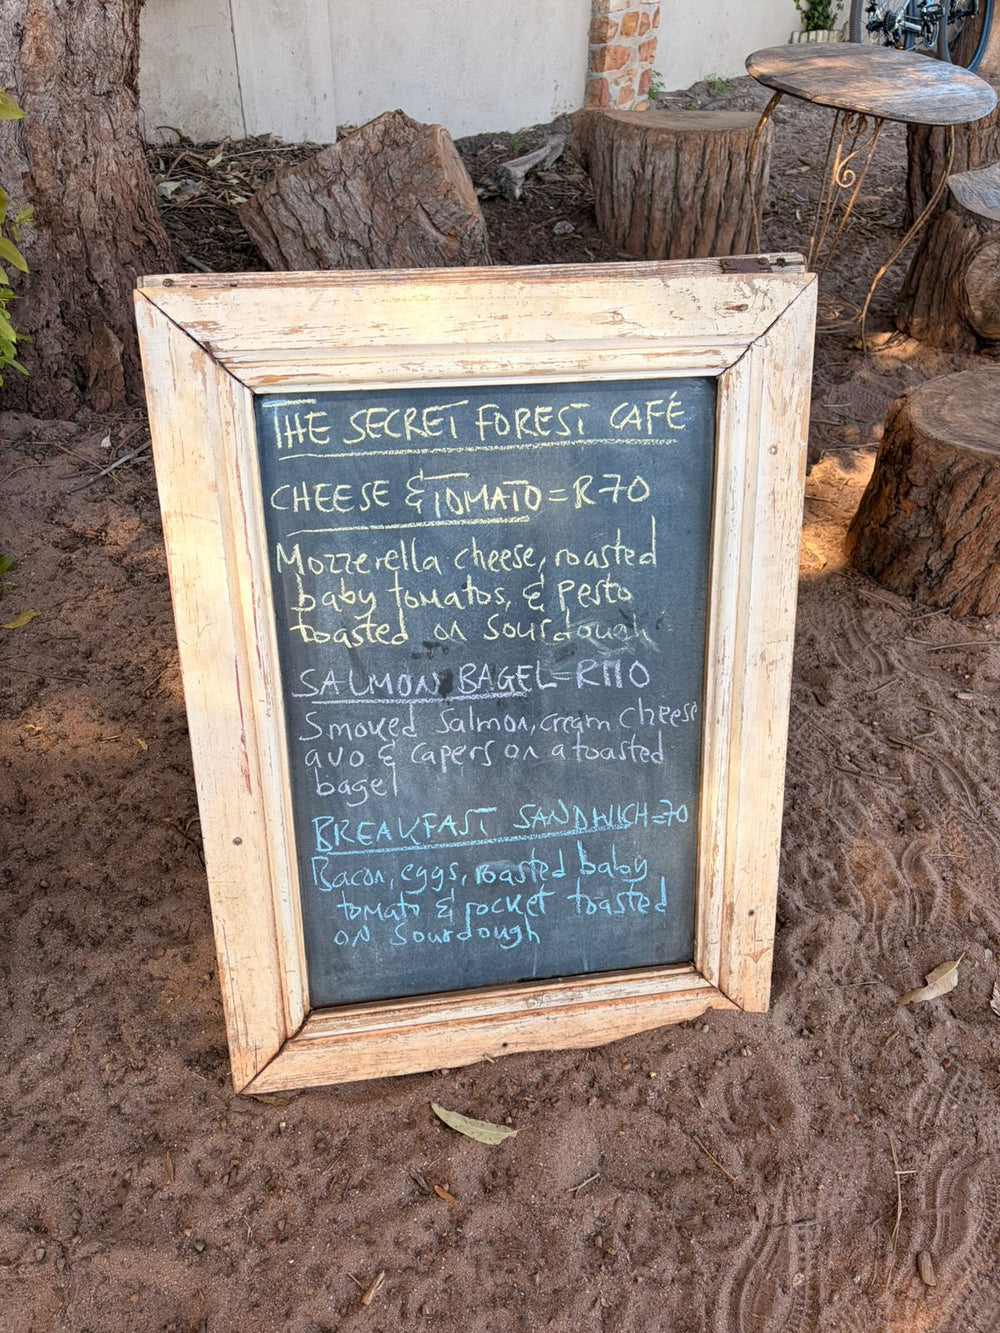 THE SECRET FOREST CAFÉ
CHEESE & TOMATO = R70
Mozzerella cheese, roasted
baby tomatos, & pesto
toasted on sourdough
SALMON BAGEL = R110
Smoked Salmon, cream cheese
avo & capers on a toasted
bagel
BREAKFAST SANDWICH = 70
Bacon, eggs, roasted baby
tomato & rocket toasted
on sourdough